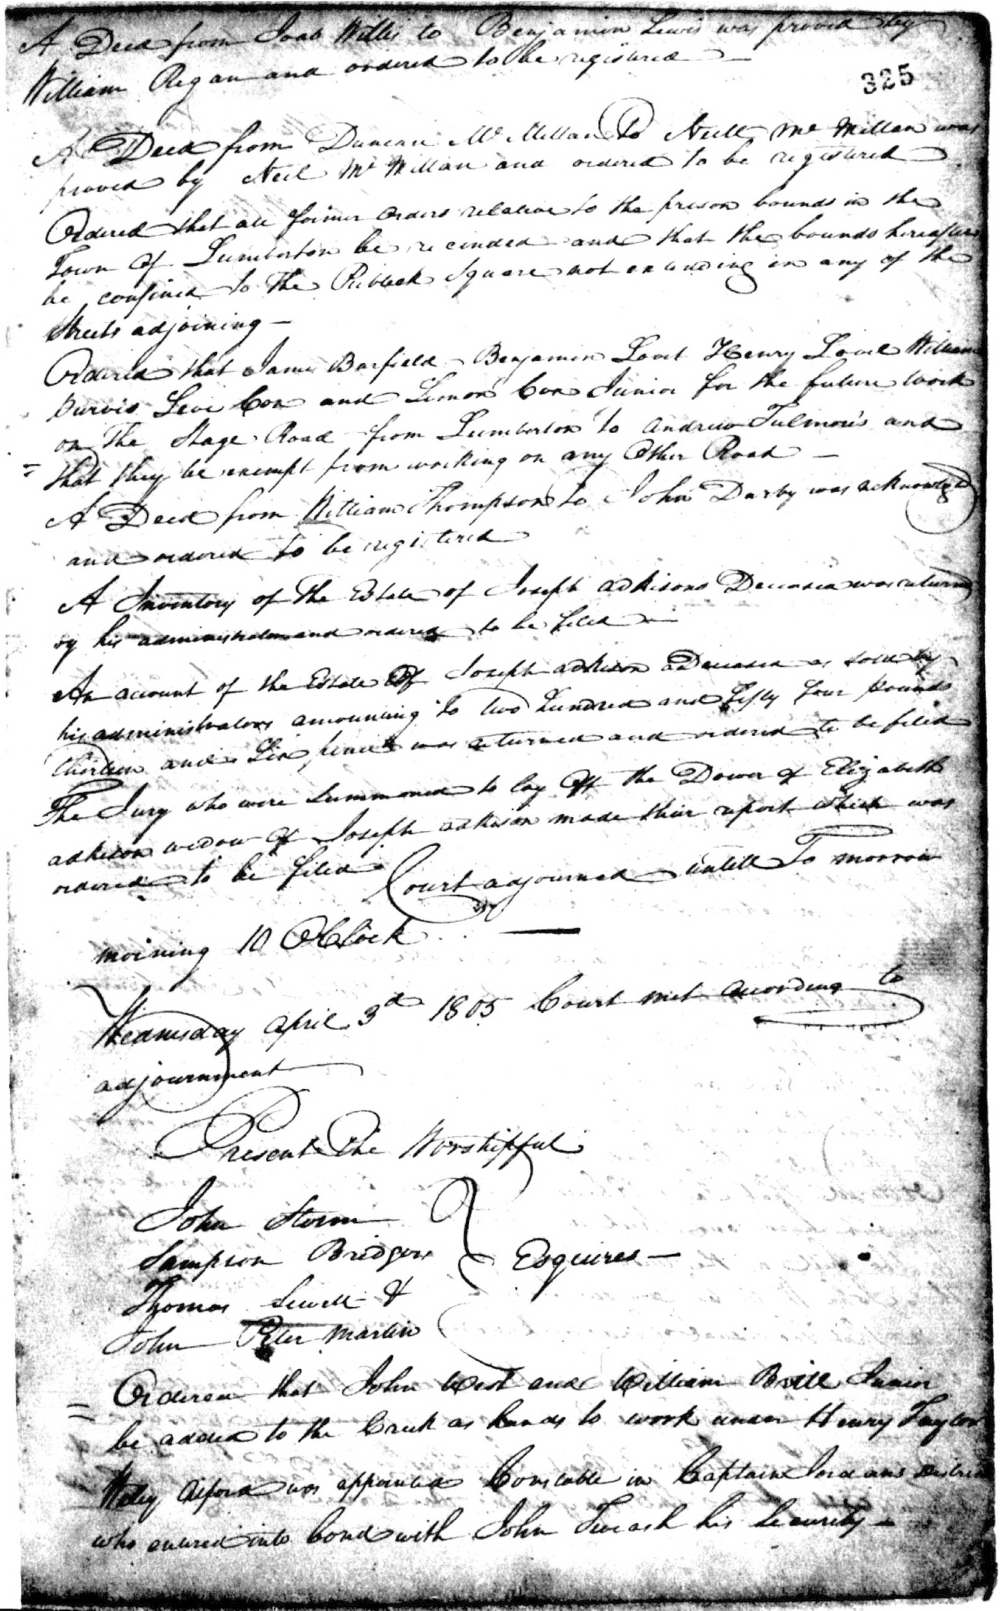 A Deed from Joab Willis to Benjamin Lewis was proved by
William Regan and ordered to be registered
325
A Deed from Duncan Mc Millan To Neill Mc Millan was
proved by Neil Mc Millan and ordered to be registered
Ordered that all former orders relative to the prison bounds in the
Town of Lumberton be recinded and that the bounds hereafter
be confined to the Publick Square not extending in any of the
streets adjoining
Ordered that James Barfield Benjamin Henry William
Purvis Levi Cox and Simon Cox Junior for the future work
on the Stage Road from Lumberton to Andrew Fulmore's and
that they be exempt from working on any Other Road
A Deed from William Thompson to John Darby was acknowledged
and ordered to be registered
A Inventory of the Estate of Joseph adkisons Deceased was returned
by his administrators and ordered to be filed
An account of the Estate Of Joseph adkison Deceased as sold by
his administrators amounting to two hundred and fifty four pounds
thirteen and Six pence was returned and ordered to be filed
The Jury who were Summoned to lay Off the Dower of Elizabeth
adkison widow Of Joseph adkison made their report which was
ordered to be filed Court adjourned untill To morrow
moining 10 OClock
Wednesday april 3d 1805 Court met acording to
adjournment
Present The Worshipful
John Storm
Sampson Bridgers Esquires
Thomas Sewell &
John Peter Martin
Ordered that John West and William Britt Junior
be added to the Creek as hands to work under Henry Taylor
Wiley Alford was appointed Constable in Captain Jordans District
who entered into bond with John his Security